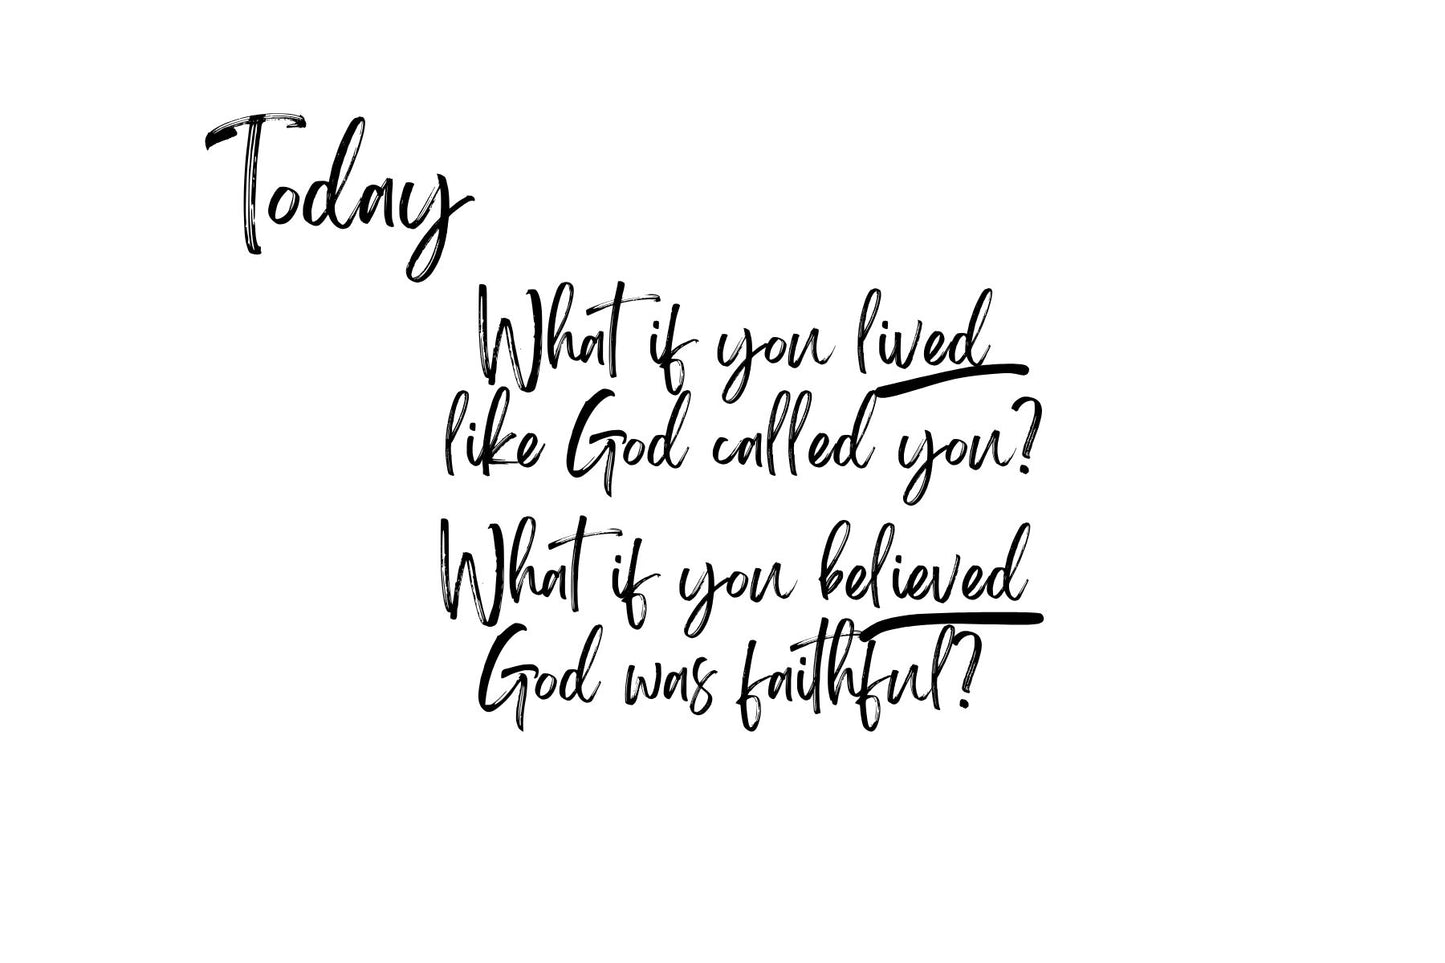 Today
What if you lived
like God called you?
What if you believed
God was faithful?